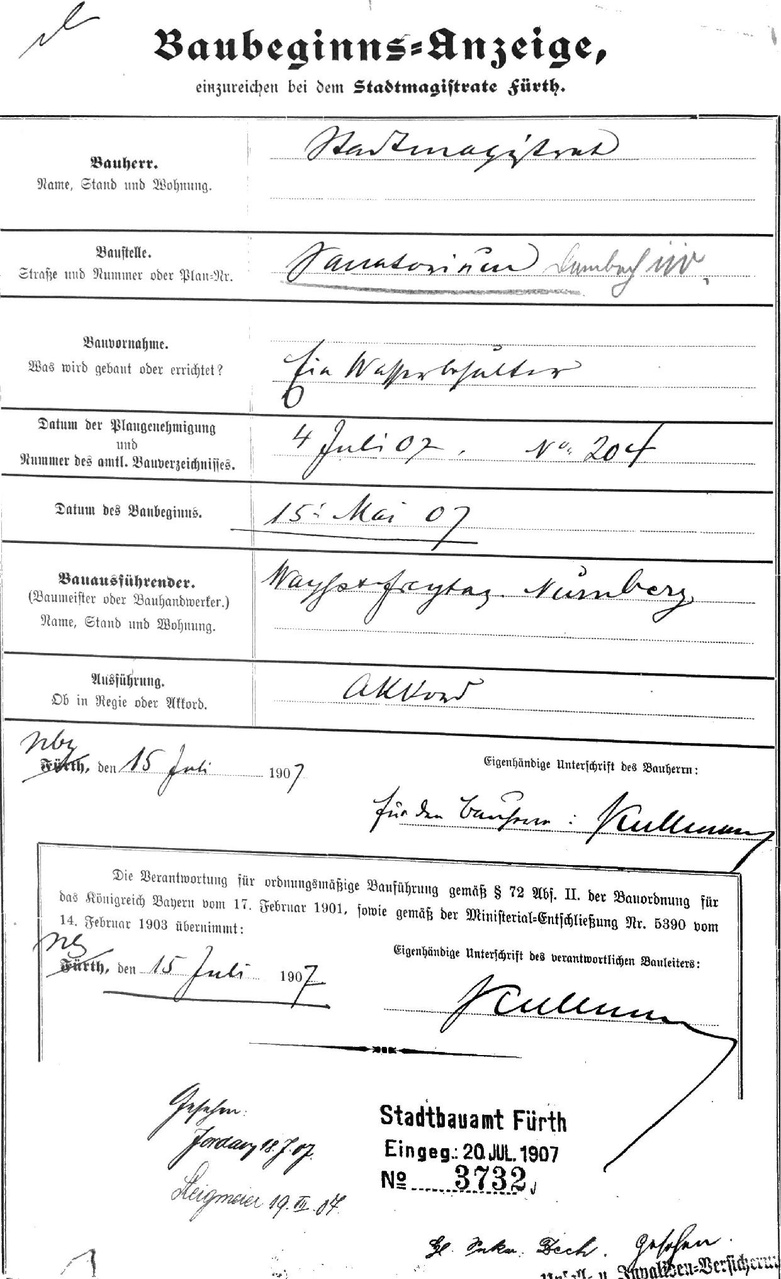 Baubeginns-Anzeige,
einzureichen bei dem Stadtmagistrate Fürth.
Bauherr.
Name, Stand und Wohnung.
Stadtmagistrat
Baustelle.
Straße und Nummer oder Plan-Nr.
Sanatorium Dambach
Bauvornahme.
Was wird gebaut oder errichtet?
Ein Wasserbehälter
Datum der Plangenehmigung
und
Nummer des amtl. Bauverzeichnisses.
4 Juli 07. No. 204
Datum des Baubeginns.
15. Mai 07
Bauausführender.
(Baumeister oder Bauhandwerker.)
Name, Stand und Wohnung.
Wayss & Freytag Nürnberg
Ausführung.
Ob in Regie oder Akkord.
Akkord
Nbg
Fürth, den 15 Juli 1907
Eigenhändige Unterschrift des Bauherrn:
für den Bauherrn: Kullmann
Die Verantwortung für ordnungsmäßige Bauführung gemäß § 72 Abs. II. der Bauordnung für
das Königreich Bayern vom 17. Februar 1901, sowie gemäß der Ministerial-Entschließung Nr. 5390 vom
14. Februar 1903 übernimmt:
Nbg
Fürth, den 15 Juli 1907
Eigenhändige Unterschrift des verantwortlichen Bauleiters:
Kullmann
Gesehen:
18.7.07.
19.VII.07
Stadtbauamt Fürth
Eingeg.: 20 JUL. 1907
No 3732
Gesehen.
Unfall- u. Invaliden-Versicherun